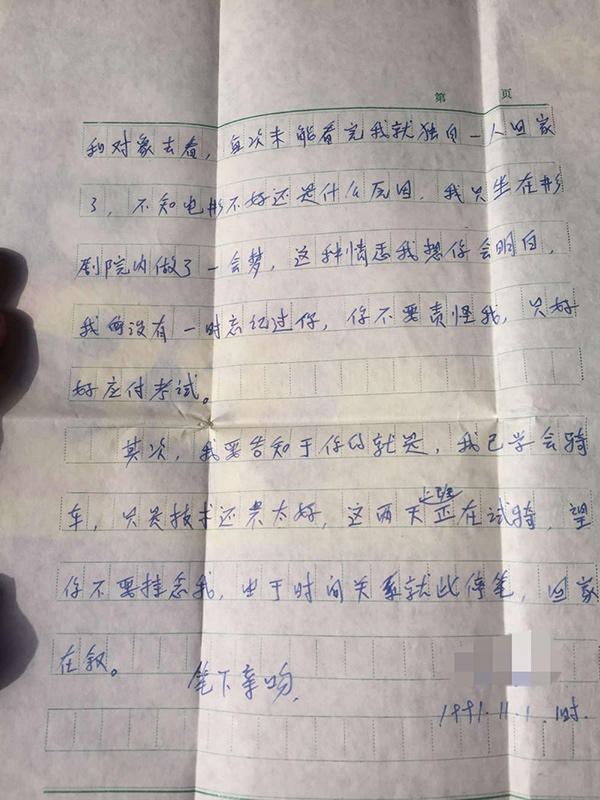 第 页
和对象去看，每次未能看完我就独自一人回家
了，不知电影不好还是什么原因，我只坐在影
剧院内做了一会梦，这种情态我想你会明白，
我没有一时忘记过你，你不要责怪我，只好
好应付考试。
其次，我要告知于你的就是，我已学会骑
车，只是技术还不太好，这两天正在试骑，望
你不要挂念我，由于时间关系就此停笔，回家
在叙。
笔下亲吻，
1991.11.1. 时.